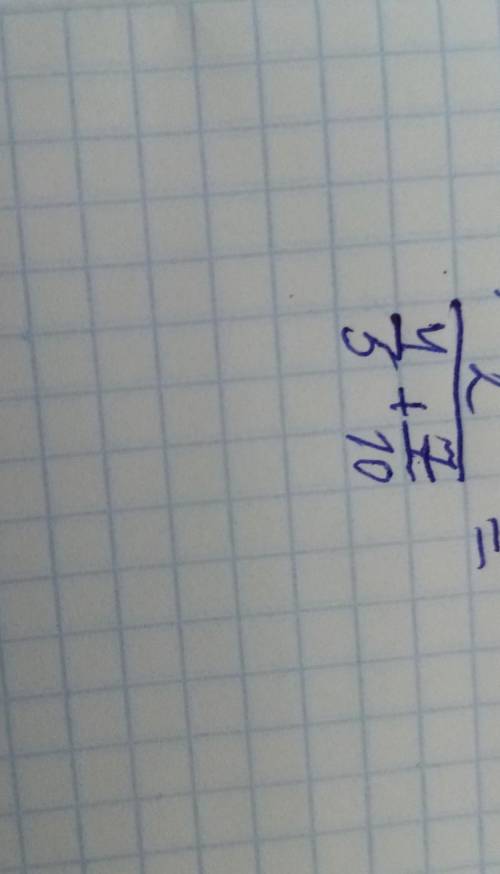 2
4/5 + 7/10 =